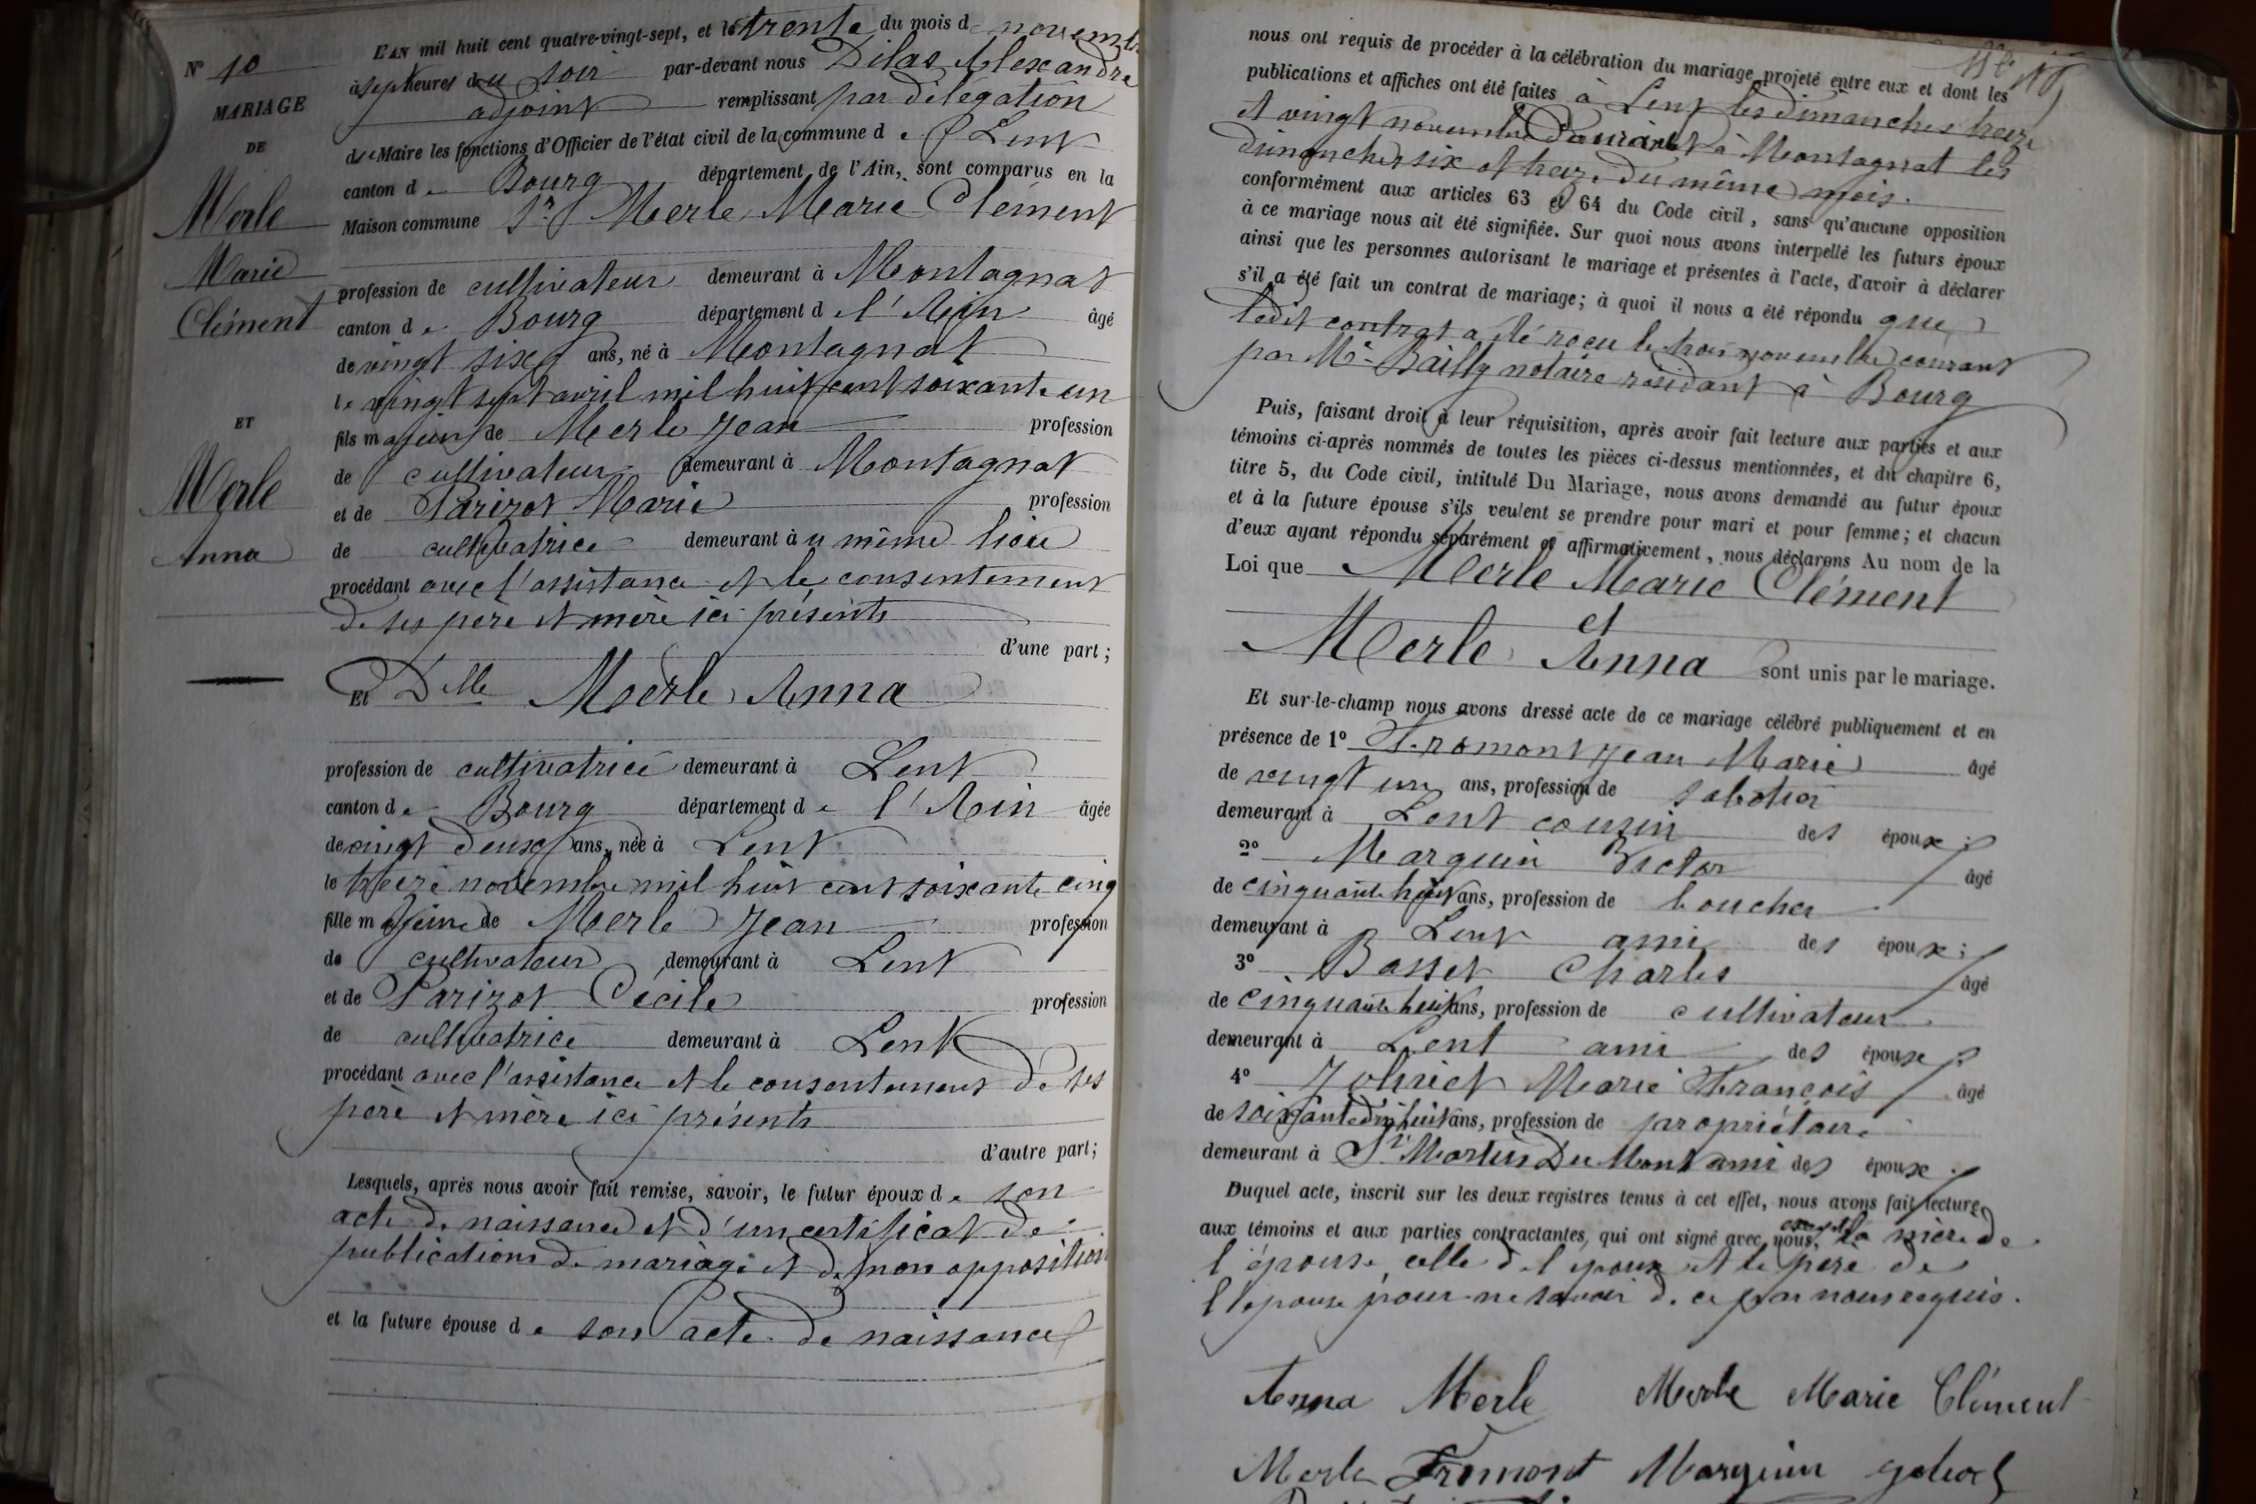 L'AN mil huit cent quatre-vingt-sept, et le trente du mois de novembre
N° 10
à sept heures du soir par-devant nous Dilas Alexandre
adjoint remplissant par délégation
MARIAGE
DE
Merle
Marie
Clément
ET
Merle
Anna
du Maire les fonctions d'Officier de l'état civil de la commune de Lent
canton de Bourg département de l'Ain, sont comparus en la
Maison commune Sr Merle Marie Clément
profession de cultivateur demeurant à Montagnat
canton de Bourg département de l'Ain âgé
de vingt six ans, né à Montagnat
le vingt sept avril mil huit cent soixante un
fils majeur de Merle Jean profession
de cultivateur demeurant à Montagnat
et de Parizot Marie profession
de cultivatrice demeurant au même lieu
procédant avec l'assistance et le consentement
de ses père et mère ici présents
d'une part;
Et Dlle Merle Anna
profession de cultivatrice demeurant à Lent
canton de Bourg département de l'Ain âgée
de vingt deux ans, née à Lent
le treize novembre mil huit cent soixante cinq
fille majeure de Merle Jean profession
de cultivateur demeurant à Lent
et de Parizot Cécile profession
de cultivatrice demeurant à Lent
procédant avec l'assistance et le consentement de ses
père et mère ici présents
d'autre part;
Lesquels, après nous avoir fait remise, savoir, le futur époux de son
acte de naissance et d'un certificat de
publications de mariage et de non opposition
et la future épouse de son acte de naissance
nous ont requis de procéder à la célébration du mariage projeté entre eux et dont les
publications et affiches ont été faites à Lent les dimanches treize
et vingt novembre courant et à Montagnat les
dimanches six et treize du même mois.
conformément aux articles 63 et 64 du Code civil, sans qu'aucune opposition
à ce mariage nous ait été signifiée. Sur quoi nous avons interpellé les futurs époux
ainsi que les personnes autorisant le mariage et présentes à l'acte, d'avoir à déclarer
s'il a été fait un contrat de mariage; à quoi il nous a été répondu que
ledit contrat a été reçu le trois novembre courant
par Me Bailly notaire résidant à Bourg
Puis, faisant droit à leur réquisition, après avoir fait lecture aux parties et aux
témoins ci-après nommés de toutes les pièces ci-dessus mentionnées, et du chapitre 6,
titre 5, du Code civil, intitulé Du Mariage, nous avons demandé au futur époux
et à la future épouse s'ils veulent se prendre pour mari et pour femme; et chacun
d'eux ayant répondu séparément et affirmativement, nous déclarons Au nom de la
Loi que Merle Marie Clément
et
Merle Anna sont unis par le mariage.
Et sur-le-champ nous avons dressé acte de ce mariage célébré publiquement et en
présence de 1° Fromont Jean Marie âgé
de vingt un ans, profession de sabotier
demeurant à Lent cousin des époux;
2° Marguin Victor âgé
de cinquante huit ans, profession de boucher
demeurant à Lent ami des époux;
3° Basset Charles âgé
de cinquante huit ans, profession de cultivateur
demeurant à Lent ami des époux;
4° Marie François âgé
de soixante dix huit ans, profession de propriétaire
demeurant à St Martin Du Mont ami des époux.
Duquel acte, inscrit sur les deux registres tenus à cet effet, nous avons fait lecture
aux témoins et aux parties contractantes, qui ont signé avec nous, excepté la mère de
l'épouse, celle de l'époux et le père de
l'épouse pour ne savoir de ce par nous requis.
Anna Merle Merle Marie Clément
Merle Fromont Marguin